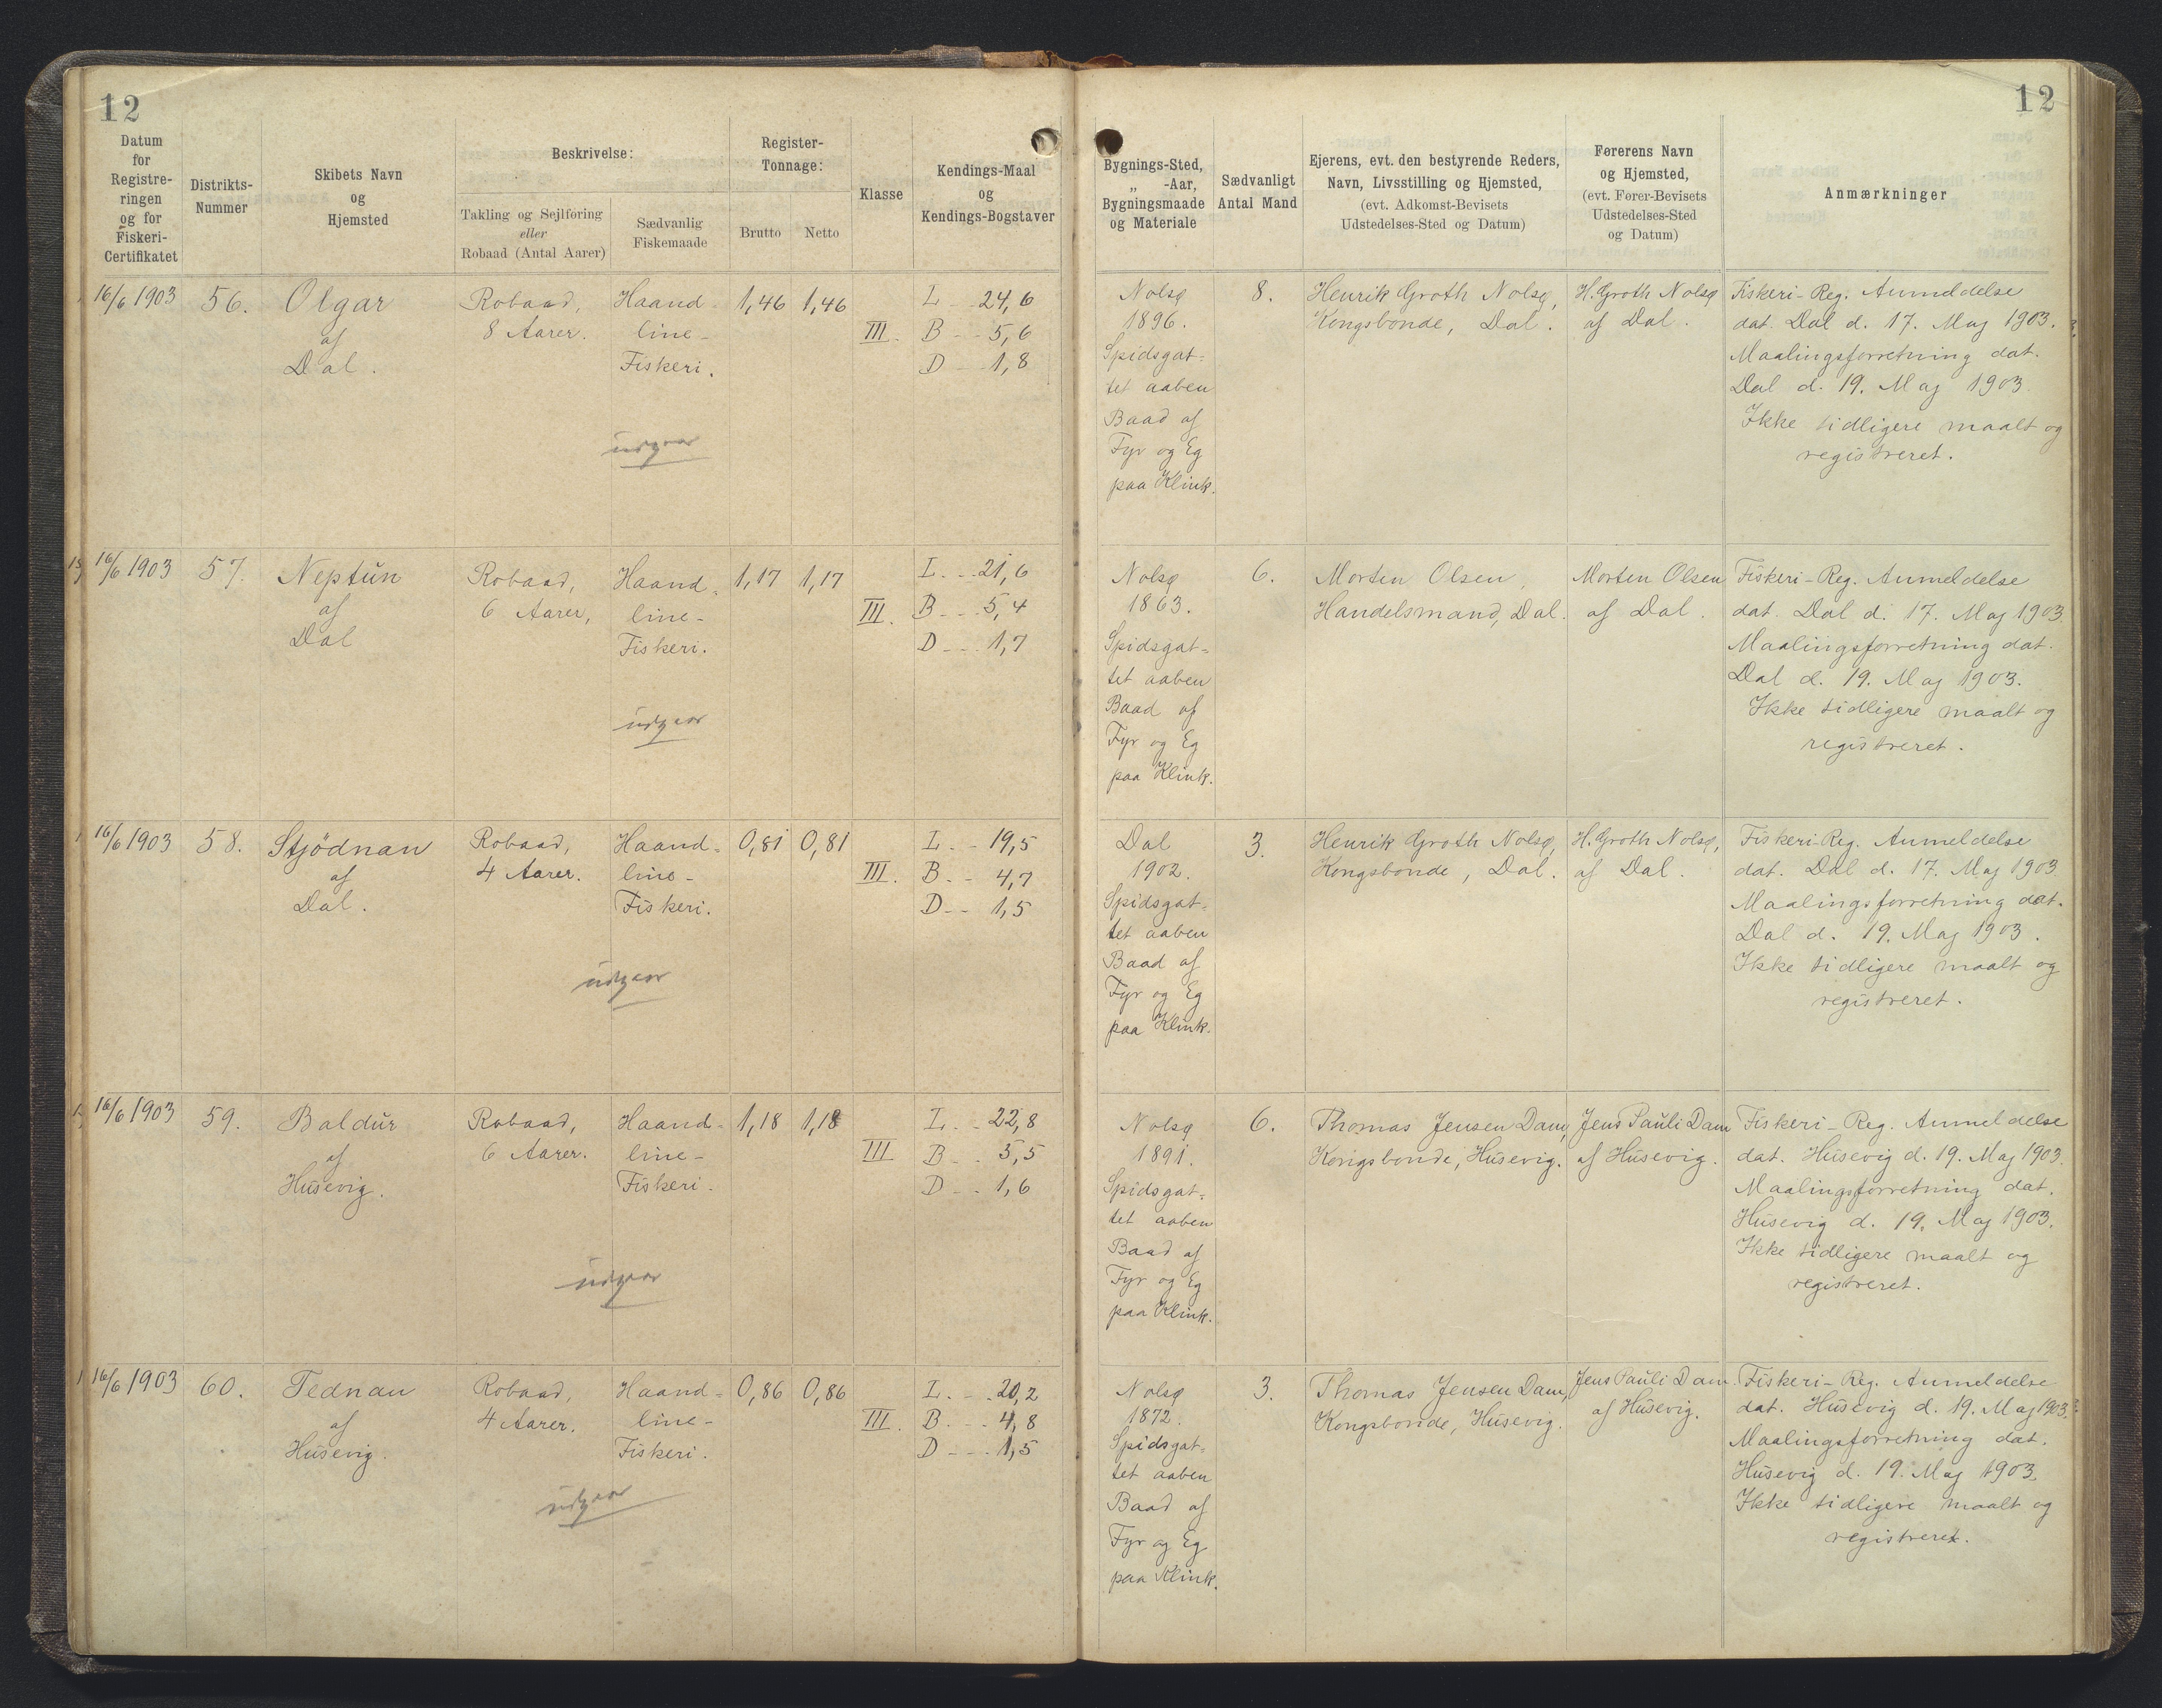 12
12
Datum
for
Registre-
ringen
og for
Fiskeri-
Certifikatet
Distrikts-
Nummer
Skibets Navn
og
Hjemsted
Beskrivelse:
Takling og Sejlföring
eller
Robaad (Antal Aarer)
Sædvanlig
Fiskemaade
Register-
Tonnage:
Brutto
Netto
Klasse
Kendings-Maal
og
Kendings-Bogstaver
Bygnings-Sted,
„ -Aar,
Bygningsmaade
og Materiale
Sædvanligt
Antal Mand
Ejerens, evt. den bestyrende Reders,
Navn, Livsstilling og Hjemsted,
(evt. Adkomst-Bevisets
Udstedelses-Sted og Datum)
Førerens Navn
og Hjemsted,
(evt. Fører-Bevisets
Udstedelses-Sted
og Datum)
Anmærkninger
16/6 1903
56.
Olgar
af
Dal.
Robaad,
8 Aarer.
Haand
line-
Fiskeri.
1,46
1,46
III.
L - 24,6
B - - 5,6
D - - 1,8
udgaar
Nolsø
1896.
Spidsgat-
tet aaben
Baad af
Fyr og Eg
paa Klink.
8.
Henrik Groth Nolsø,
Kongsbonde, Dal.
H. Groth Nolsø
af Dal.
Fiskeri-Reg. Anmeldelse
dat. Dal d. 17. Maj 1903.
Maalingsforretning dat.
Dal d. 19. Maj 1903
Ikke tidligere maalt og
registreret.
16/6 1903
57.
Neptun
af
Dal
Robaad,
6 Aarer,
Haand-
line-
Fiskeri.
1,17
1,17
III.
L. - - 21,6
B - - - 5,4
D - - - 1,7
udgaar
Nolsø
1863.
Spidsgat-
tet aaben
Baad af
Fyr og Eg
paa Klink.
6.
Morten Olsen,
Handelsmand, Dal.
Morten Olsen
af Dal.
Fiskeri-Reg. Anmeldelse
dat. Dal d. 17. Maj 1903
Maalingsforretning dat.
Dal d. 19. Maj 1903.
Ikke tidligere maalt og
registreret.
16/6 1903
58.
Stjödnan
af
Dal.
Robaad,
4 Aarer.
Haand-
line-
Fiskeri.
0,81
0,81
III.
L. - 19,5
B. - - 4,7
D - - 1,5
udgaar
Dal
1902.
Spidsgat-
tet aaben
Baad af
Fyr og Eg
paa Klink.
3.
Henrik Groth Nolsø,
Kongsbonde, Dal.
H. Groth Nolsø,
af Dal.
Fiskeri-Reg. Anmeldelse
dat. Dal d. 17. Maj 1903.
Maalingsforretning dat.
Dal d. 19. Maj 1903.
Ikke tidligere maalt og
registreret.
16/6 1903
59.
Baldur
af
Husevig.
Robaad,
6 Aarer.
Haand-
line-
Fiskeri.
1,18
1,18
III
L. - - 22,8
B - - 5,5
D - - 1,6
udgaar
Nolsø
1891.
Spidsgat-
tet aaben
Baad af
Fyr og Eg
paa Klink.
6.
Thomas Jensen Dam,
Kongsbonde, Husevig.
Jens Pauli Dam
af Husevig.
Fiskeri-Reg. Anmeldelse
dat. Husevig d. 19. Maj 1903.
Maalingsforretning dat.
Husevig d. 19. Maj 1903.
Ikke tidligere maalt og
registreret.
16/6 1903
60.
Tednan
af
Husevig.
Robaad,
4 Aarer.
Haand-
line-
Fiskeri.
0,86
0,86
III.
L. - - 20,2
B. - - 4,8
D - - - 1,5
udgaar
Nolsø
1872.
Spidsgat-
tet aaben
Baad af
Fyr og Eg
paa Klink.
3.
Thomas Jensen Dam,
Kongsbonde, Husevig.
Jens Pauli Dam.
af Husevig.
Fiskeri-Reg. Anmeldelse
dat. Husevig d. 19. Maj 1903.
Maalingsforretning dat.
Husevig d. 19. Maj 1903.
Ikke tidligere maalt og
registreret.